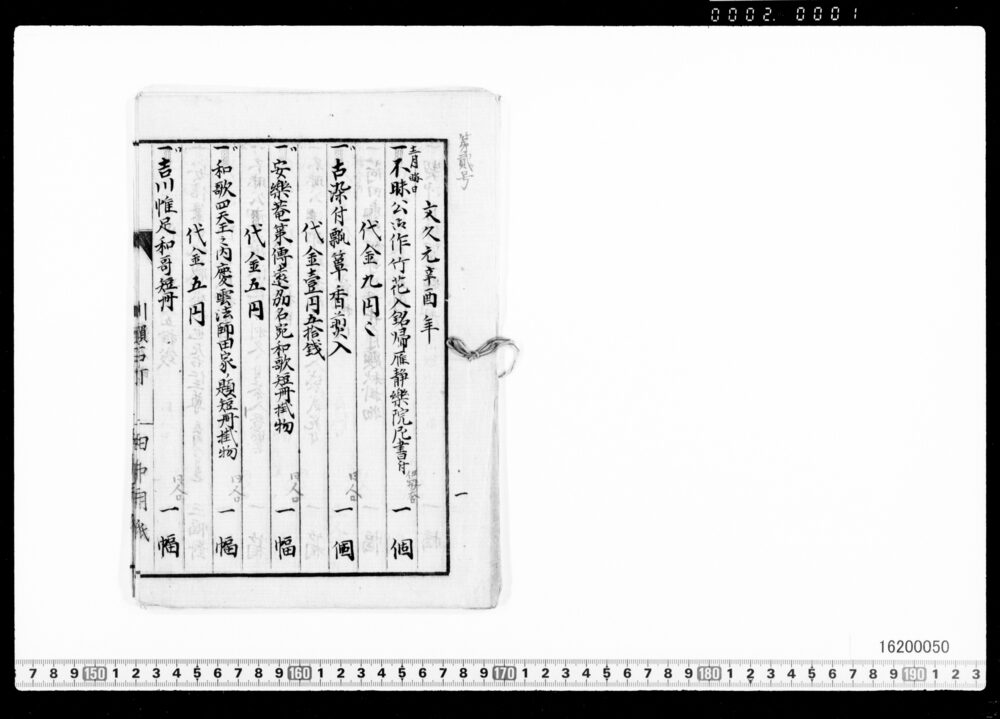 0002.0001
第貳号
文久元辛酉年
十二月晦日
一不昧公御作竹花入銘帰雁静樂院尼書付 一個
代金九円
一古染付瓢箪香煎入 一個
代金壹円五拾錢
一安樂菴策傳遠州名宛和歌短冊掛物 一幅
代金五円
一和歌四天王之内慶雲法師田家題短冊掛物 一幅
代金五円
一吉川惟足和哥短冊 一幅
一
川瀬石町
田中用紙
16200050
7 8 9 150 1 2 3 4 5 6 7 8 9 160 1 2 3 4 5 6 7 8 9 170 1 2 3 4 5 6 7 8 9 180 1 2 3 4 5 6 7 8 9 190 1 2 3